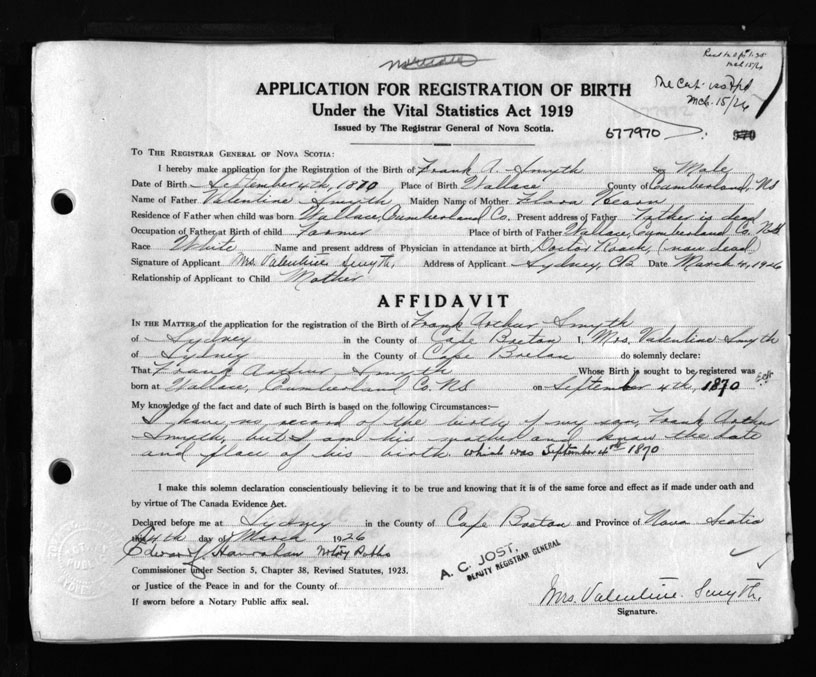 Mcb 15/26
APPLICATION FOR REGISTRATION OF BIRTH
Under the Vital Statistics Act 1919
Issued by The Registrar General of Nova Scotia.
677970 970
TO THE REGISTRAR GENERAL OF NOVA SCOTIA:
I hereby make application for the Registration of the Birth of Frank A. Smyth Sex Male
Date of Birth September 4th, 1870 Place of Birth Wallace County of Cumberland, NS
Name of Father Valentine Smyth Maiden Name of Mother Flora Hearn
Residence of Father when child was born Wallace, Cumberland Co. Present address of Father Father is dead
Occupation of Father at Birth of child Farmer Place of birth of Father Wallace, Cumberland Co. NS
Race White Name and present address of Physician in attendance at birth Doctor Roach, (now dead)
Signature of Applicant Mrs. Valentine Smyth. Address of Applicant Sydney, CB Date March 4, 1926
Relationship of Applicant to Child Mother
AFFIDAVIT
IN THE MATTER of the application for the registration of the Birth of Frank Arthur Smyth
of Sydney in the County of Cape Breton I, Mrs. Valentine Smyth
of Sydney in the County of Cape Breton do solemnly declare:
That Frank Arthur Smyth Whose Birth is sought to be registered was
born at Wallace, Cumberland Co. NS on September 4th, 1870
My knowledge of the fact and date of such Birth is based on the following Circumstances:—
I have no record of the birth of my son, Frank Arthur
Smyth, but I am his mother and know the date
and place of his birth which was September 4th 1870
I make this solemn declaration conscientiously believing it to be true and knowing that it is of the same force and effect as if made under oath and
by virtue of The Canada Evidence Act.
Declared before me at Sydney in the County of Cape Breton and Province of Nova Scotia
this 4th day of March 1926
A. C. JOST,
DEPUTY REGISTRAR GENERAL
Commissioner under Section 5, Chapter 38, Revised Statutes, 1923.
or Justice of the Peace in and for the County of
If sworn before a Notary Public affix seal.
Mrs. Valentine Smyth.
Signature.